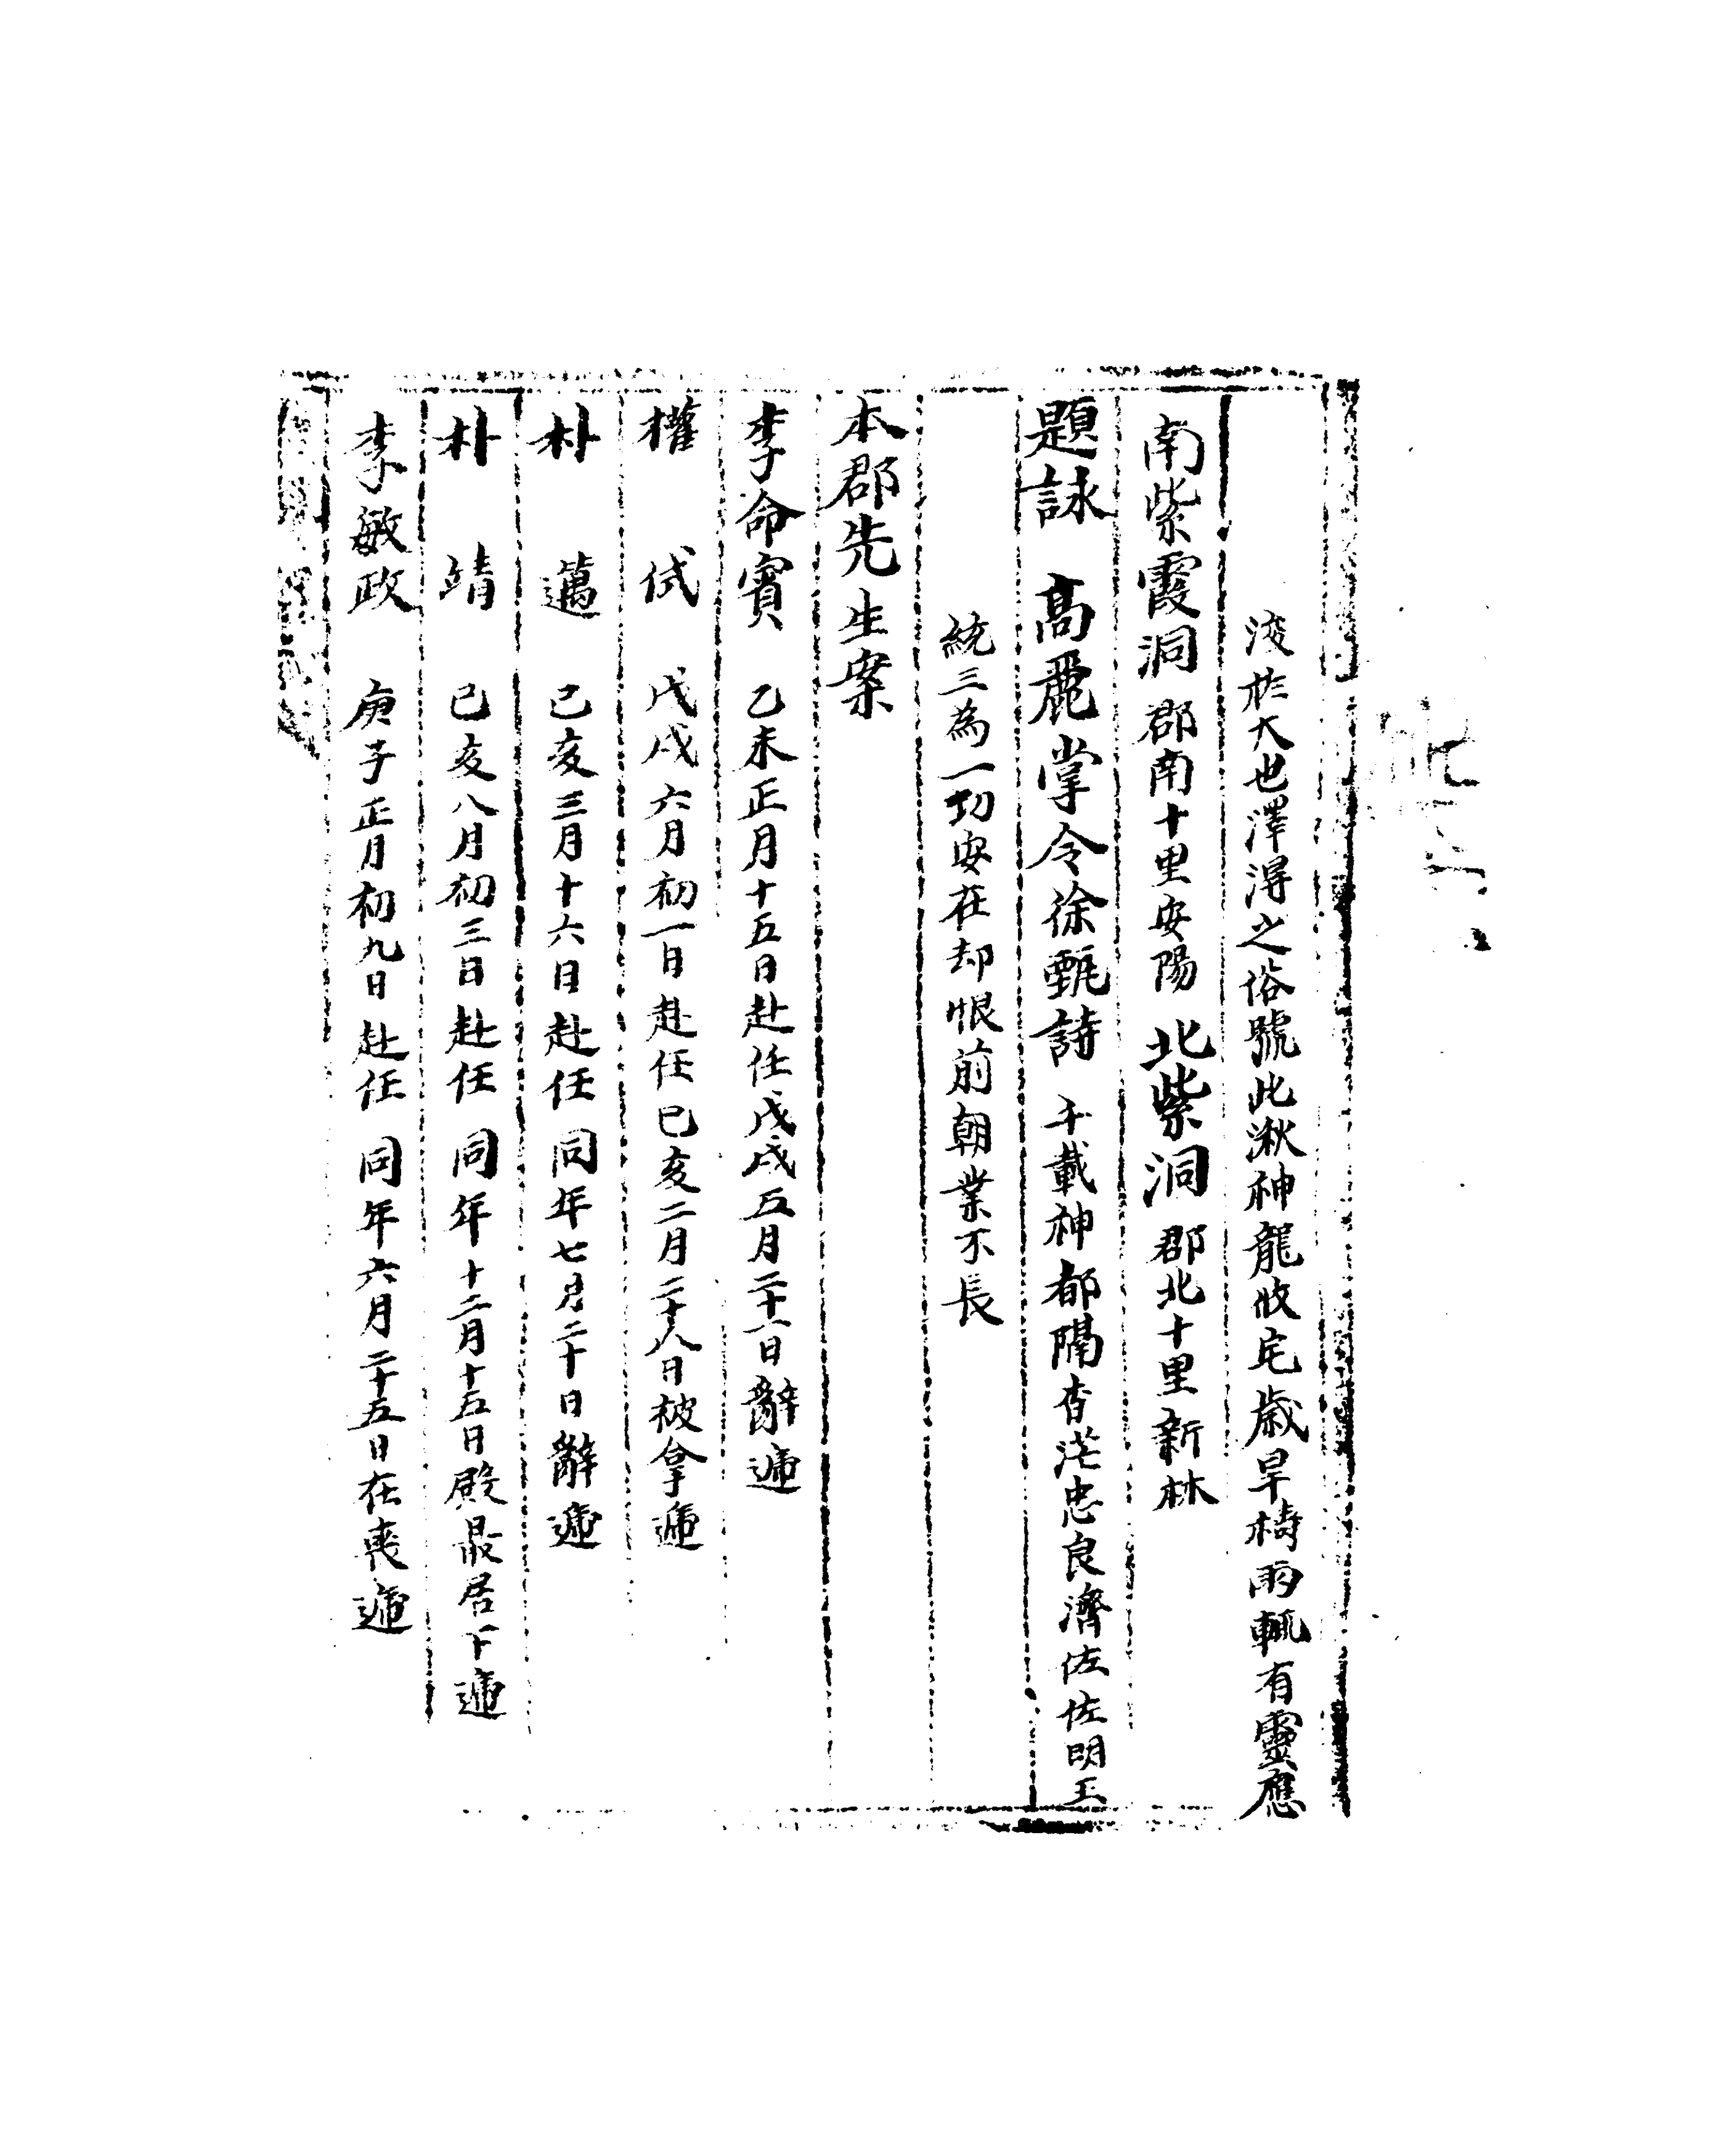 浚於大也澤潯之俗號此湫神龍攸宅歲旱檮雨輒有靈應
南紫霞洞 郡南十里安陽 北紫洞 郡北十里新林
題詠 高麗掌令徐甄詩 千載神都隔杳茫忠良濟佐佐明王
統三為一功安在却恨前朝業不長
本郡先生案
李命賓 乙未正月十五日赴任戊戌五月二十一日辭遞
權 侙 戊戌六月初一日赴任己亥二月二十八日被拿遞
朴 邁 己亥三月十六日赴任同年七月二十日辭遞
朴 靖 己亥八月初三日赴任同年十二月十五日殿最居下遞
李敏政 庚子正月初九日赴任同年六月二十五日在喪遞